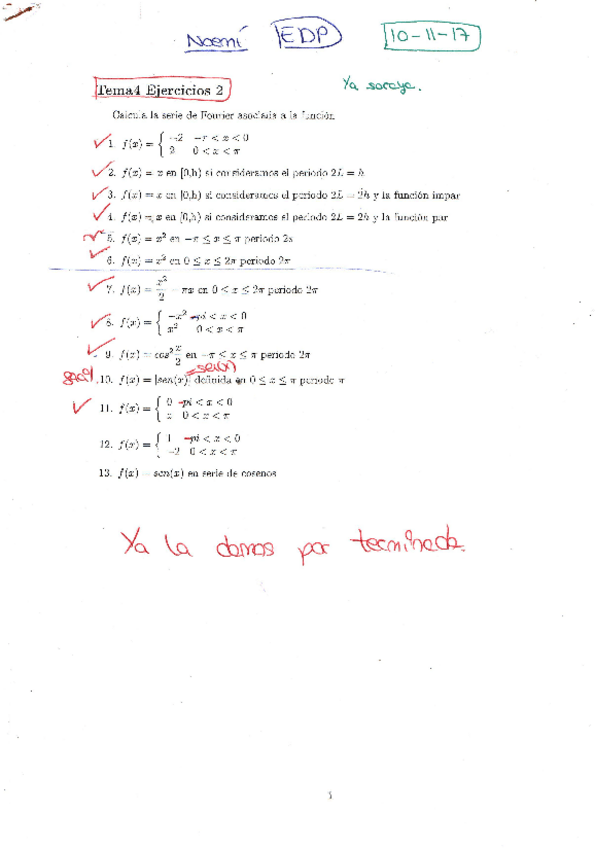 Noemí EDP 10-11-17
Ya
Tema4 Ejercicios 2
Calcula la serie de Fourier asociada a la función
1. f(x) = { -2 -π < x < 0
2 0 < x < π
2. f(x) = x en [0,h) si consideramos el periodo 2L = h
3. f(x) = x en [0,h) si consideramos el periodo 2L = 2h y la función impar
4. f(x) = x en [0,h) si consideramos el periodo 2L = 2h y la función par
5. f(x) = x² en -π ≤ x ≤ π periodo 2π
6. f(x) = x² en 0 ≤ x ≤ 2π periodo 2π
7. f(x) = x²/2 - πx en 0 < x ≤ 2π periodo 2π
8. f(x) = { -x² -pi < x < 0
x² 0 < x < π
9. f(x) = cos² x/2 en -π ≤ x ≤ π periodo 2π
= sen(x)
10. f(x) = |sen(x)| definida en 0 ≤ x ≤ π periodo π
11. f(x) = { 0 -pi < x < 0
x 0 < x < π
12. f(x) = { 1 -pi < x < 0
-2 0 < x < π
13. f(x) = sen(x) en serie de cosenos
Ya la damos por terminada.